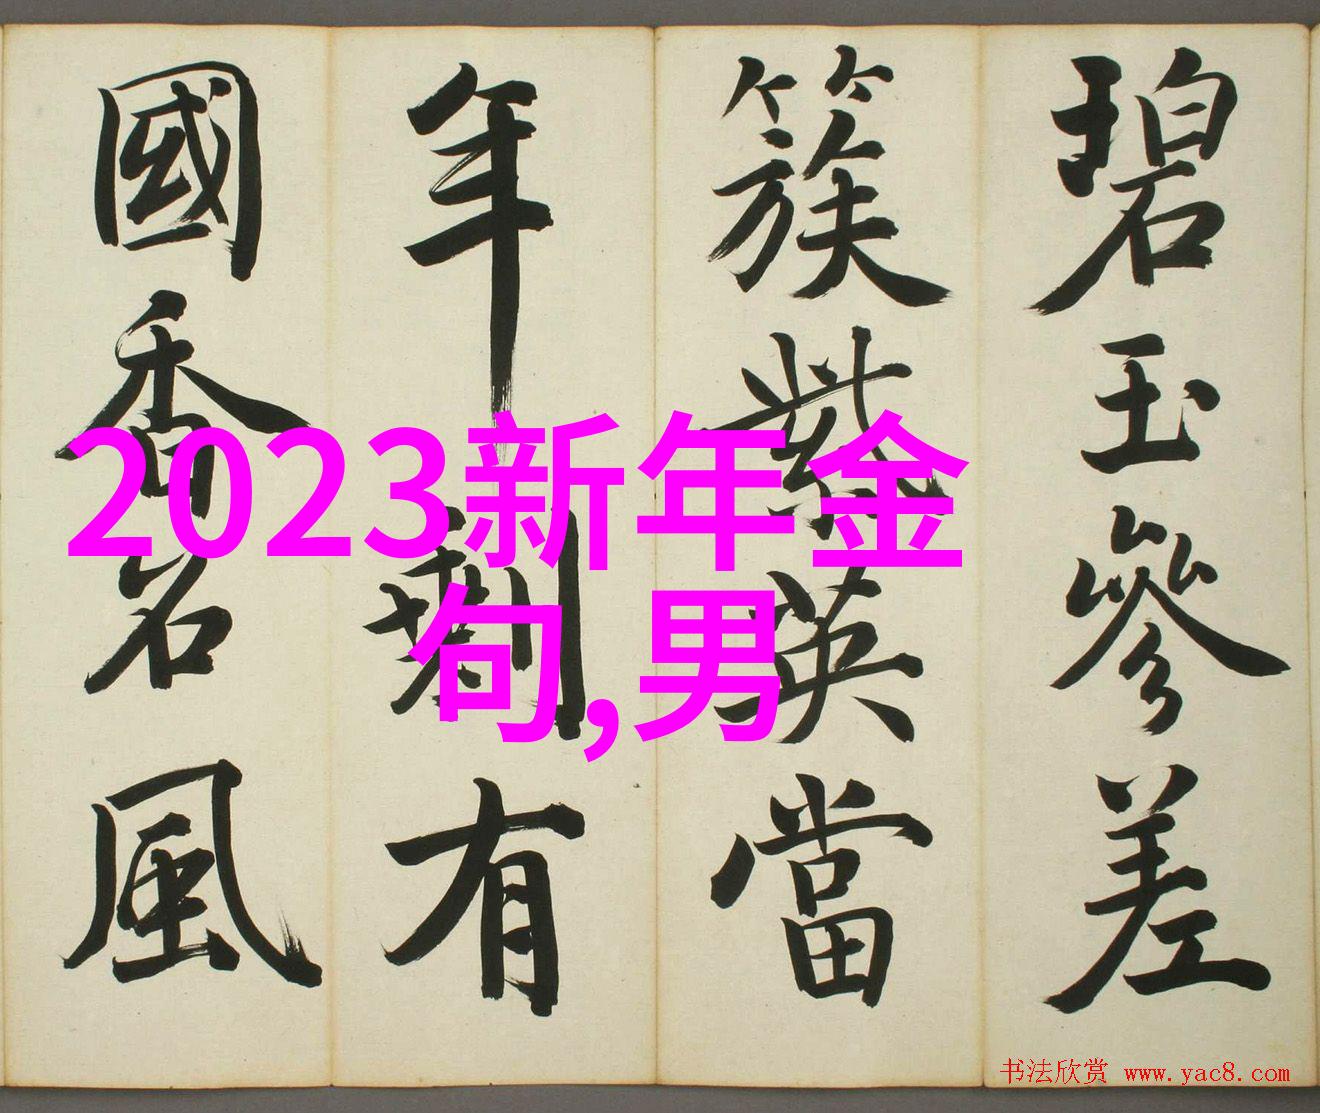 碧玉參差
簇紫英當
年剩有
國香名風
2023新年金
句,男
书法欣赏 www.yac8.com